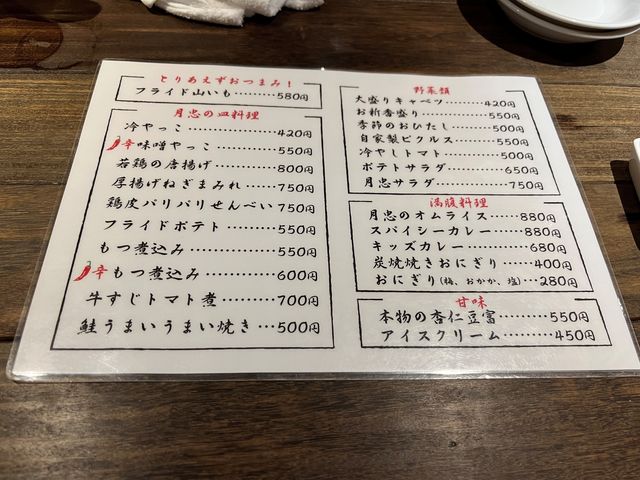 とりあえずおつまみ！
フライド山いも……580円
月忠の皿料理
冷やっこ………………420円
辛味噌やっこ…………550円
若鶏の唐揚げ…………800円
厚揚げねぎまみれ……750円
鶏皮パリパリせんべい 750円
フライドポテト………550円
もつ煮込み……………550円
辛もつ煮込み…………600円
牛すじトマト煮………700円
鮭うまいうまい焼き…500円
野菜類
大盛りキャベツ………420円
お新香盛り……………550円
季節のおひたし………500円
自家製ピクルス………550円
冷やしトマト…………500円
ポテトサラダ…………650円
月忠サラダ……………750円
満腹料理
月忠のオムライス……880円
スパイシーカレー……880円
キッズカレー…………680円
炭焼焼きおにぎり……400円
おにぎり(梅、おかか、塩)…280円
甘味
本物の杏仁豆富………550円
アイスクリーム………450円